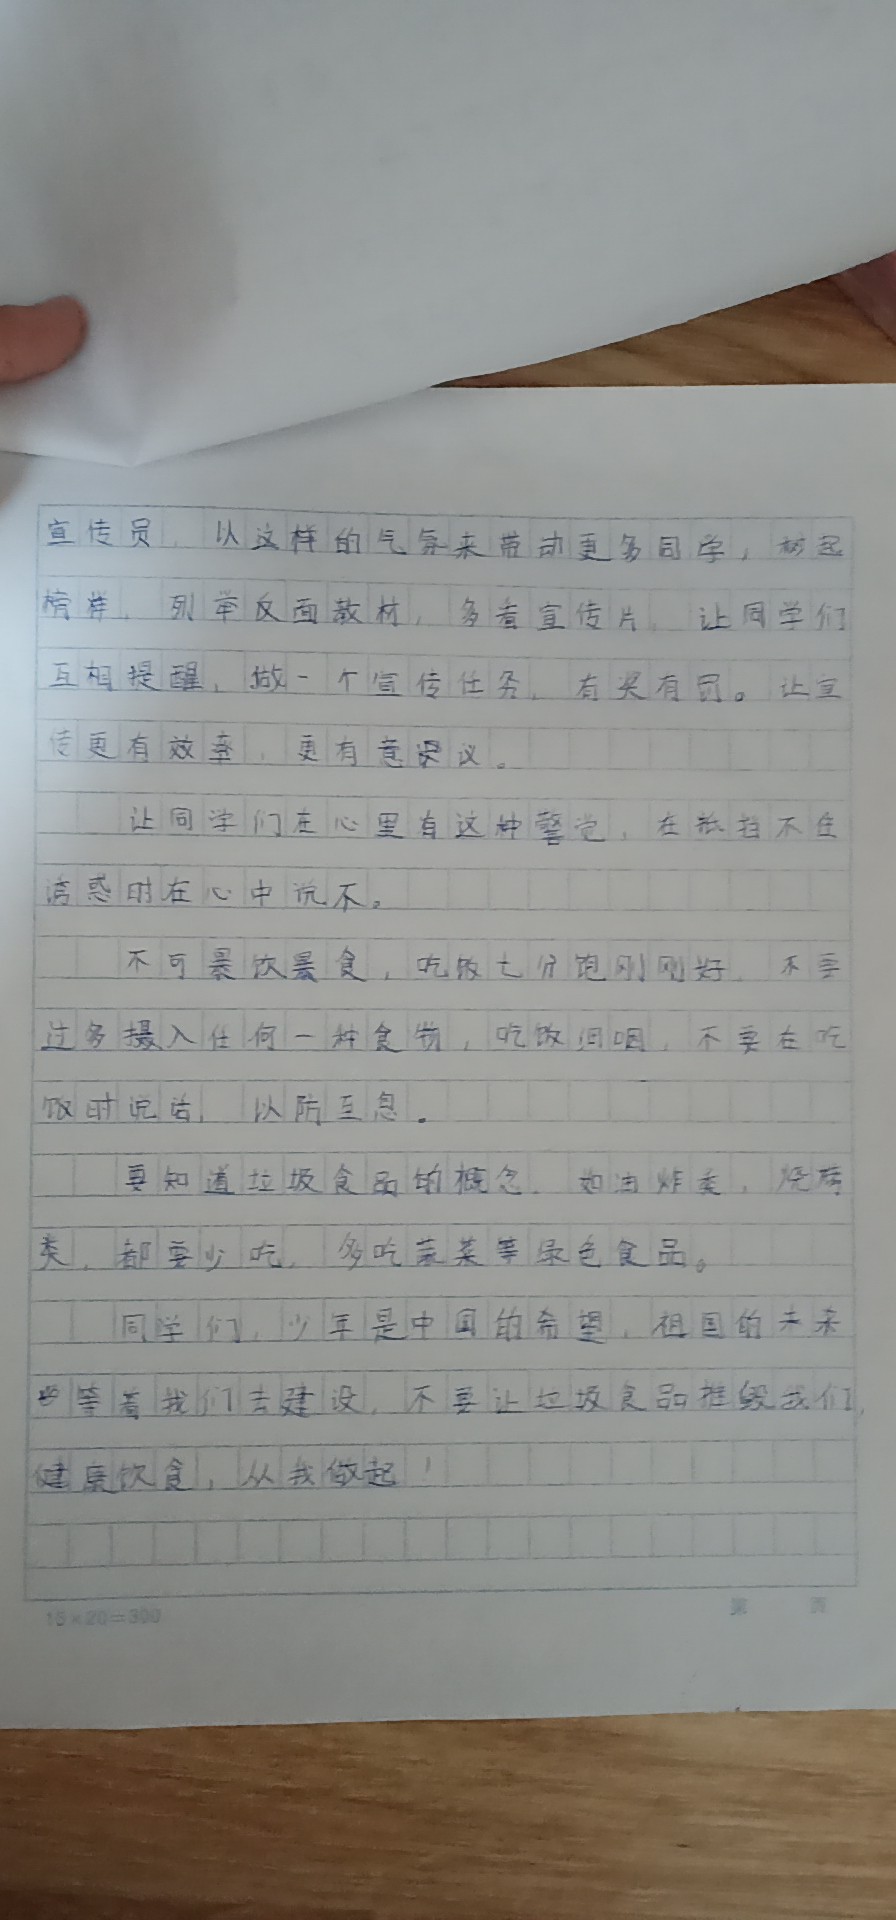 宣传员，以这样的气氛来带动更多同学，树起
榜样，列举反面教材，多看宣传片，让同学们
互相提醒，做一个宣传任务，有奖有罚。让宣
传更有效率，更有意识议。
让同学们在心里有这种警觉，在抵挡不住
诱惑时在心中说不。
不可暴饮暴食，吃饭七分饱刚刚好，不要
过多摄入任何一种食物，吃饭细咽，不要在吃
饭时说话，以防互息。
要知道垃圾食品的概念，如油炸类，烧烤
类，都要少吃，多吃蔬菜等绿色食品。
同学们，少年是中国的希望，祖国的未来
等着我们去建设，不要让垃圾食品摧毁我们，
健康饮食，从我做起！
15×20=300 第 页